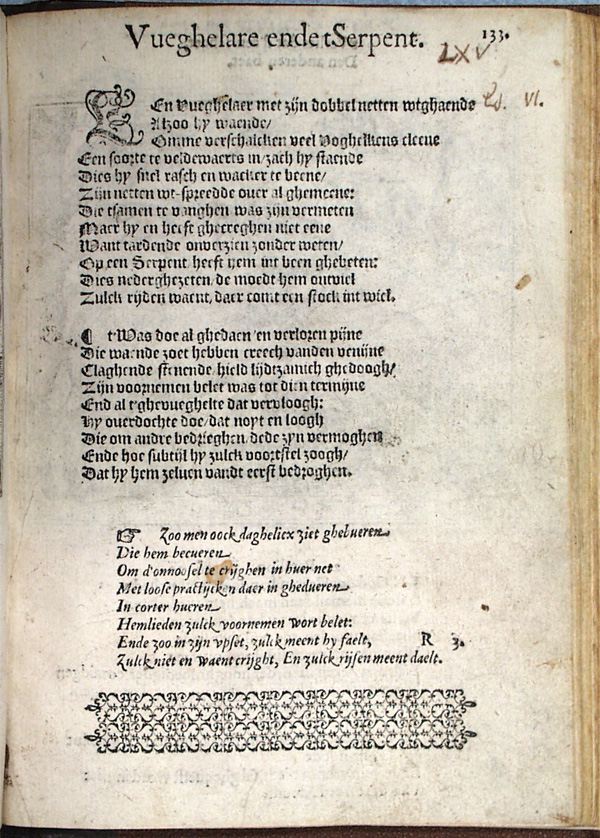 Vueghelare ende tSerpent. 133.
LXV
VI.
EEn Vueghelaer met zijn dobbel netten wtghaende
Alzoo hy waende/
Omme verschalcken veel Voghelkens cleene
Een soorte te veldewaerts in/ zach hy staende
Dies hy snel rasch en wacker te beene/
Zijn netten wt-spreedde ouer al ghemeene:
Die tsamen te vanghen was zijn vermeten
Maer hy en heeft ghecreghen niet eene
Want tardende onverzien zonder weten/
Op een Serpent heeft hem int been ghebeten:
Dies nederghezeten de moedt hem ontwiel
Zulck rijden waent, daer comt een stock int wiel.
¶ t'Was doe al ghedaen en verloren pijne
Die waende zoet hebben creech vanden venijne
Claghende stenende hield lijdtzamich ghedoogh/
Zijn voornemen belet was tot dien termijne
End al t'ghevueghelte dat vervloogh:
Hy overdochte doe/ dat noyt en loogh
Die om andre bedrieghen dede zyn vermoghen
Ende hoe subtijl hy zulck voortstel zoogh/
Dat hy hem zeluen vandt eerst bedroghen.
☞ Zoo men oock daghelicx ziet ghebueren
Die hem becueren
Om d'onnoosel te crijghen in huer net
Met loose practijcken daer in ghedueren
In corter hueren
Hemlieden zulck voornemen wort belet:
Ende zoo in zijn vpset, zulck meent hy faelt, R 3.
Zulck niet en waent crijght, En zulck rijsen meent daelt.